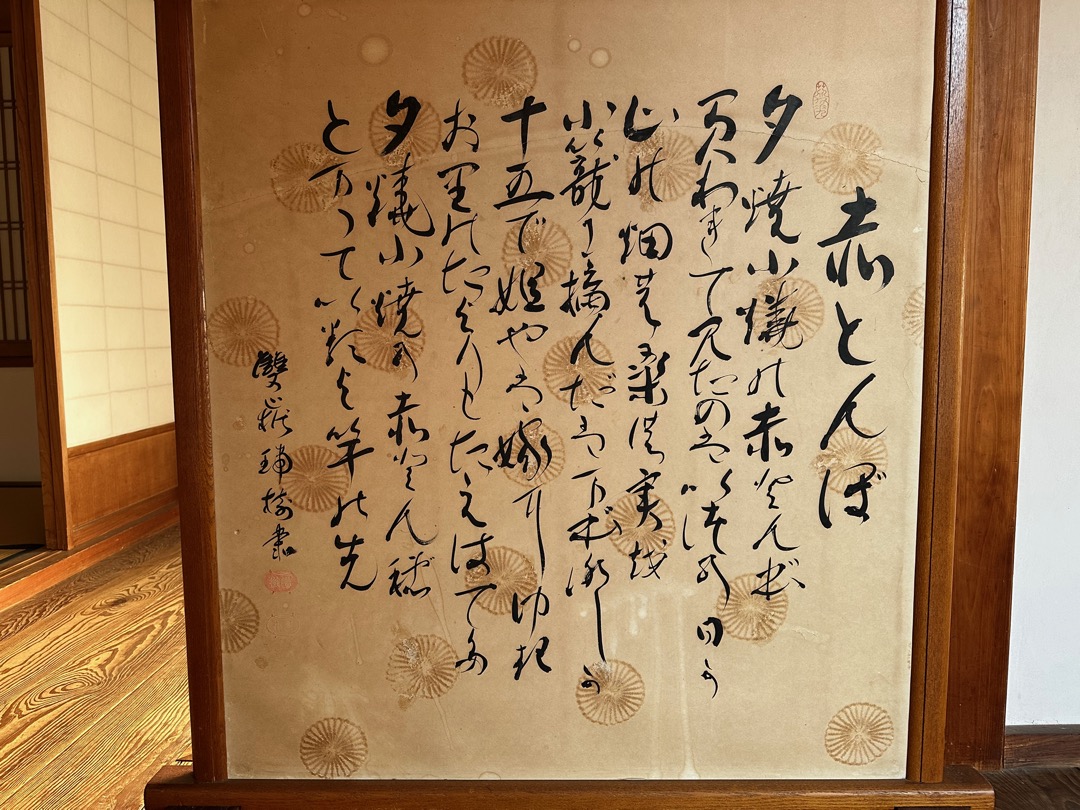 赤とんぼ
夕焼小焼の赤とんぼ
負われて見たのはいつの日か
山の畑の桑の実を
小籠に摘んだはまぼろしか
十五で姐やは嫁にゆき
お里のたよりもたえはてた
夕焼小焼の赤とんぼ
とまつているよ竿の先
書